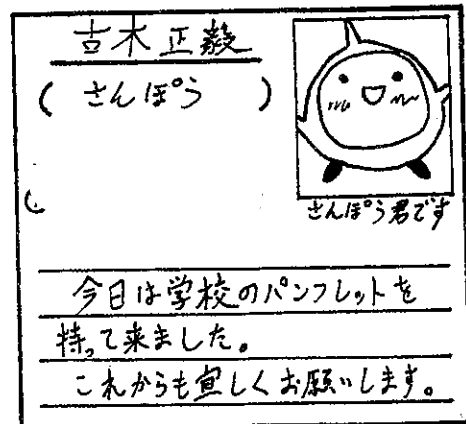 古木正毅
(さんぽう)
さんぽう君です
今日は学校のパンフレットを
持って来ました。
これからも宜しくお願いします。